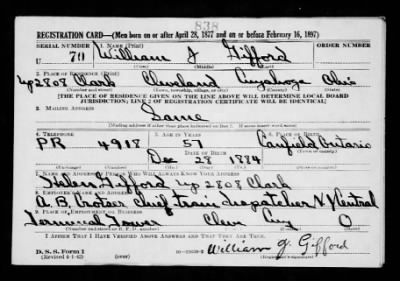 838
REGISTRATION CARD—(Men born on or after April 28, 1877 and on or before February 16, 1897)
SERIAL NUMBER 1. NAME (Print) ORDER NUMBER
U 70 William J Gifford
(First) (Middle) (Last)
2. PLACE OF RESIDENCE (Print)
2808 Clark Cleveland Cuyahoga Ohio
(Number and street) (Town, township, village, or city) (County) (State)
[THE PLACE OF RESIDENCE GIVEN ON THE LINE ABOVE WILL DETERMINE LOCAL BOARD
JURISDICTION; LINE 2 OF REGISTRATION CERTIFICATE WILL BE IDENTICAL]
3. MAILING ADDRESS
Same
(Mailing address if other than place indicated on line 2. If same insert word same)
4. TELEPHONE 5. AGE IN YEARS 6. PLACE OF BIRTH
PR 4918 57 Canfield Ontario
DATE OF BIRTH
Dec 28 1884
7. NAME AND ADDRESS OF PERSON WHO WILL ALWAYS KNOW YOUR ADDRESS
Gifford 2808 Clark
8. EMPLOYER'S NAME AND ADDRESS
A. B. Crotser chief train dispatcher N Y Central
9. PLACE OF EMPLOYMENT OR BUSINESS
Terminal Tower Cleve Cuy O
(Number and street or R. F. D. number) (Town) (County) (State)
I AFFIRM THAT I HAVE VERIFIED ABOVE ANSWERS AND THAT THEY ARE TRUE.
D. S. S. Form 1
(Revised 4-1-42) (over)
William J. Gifford